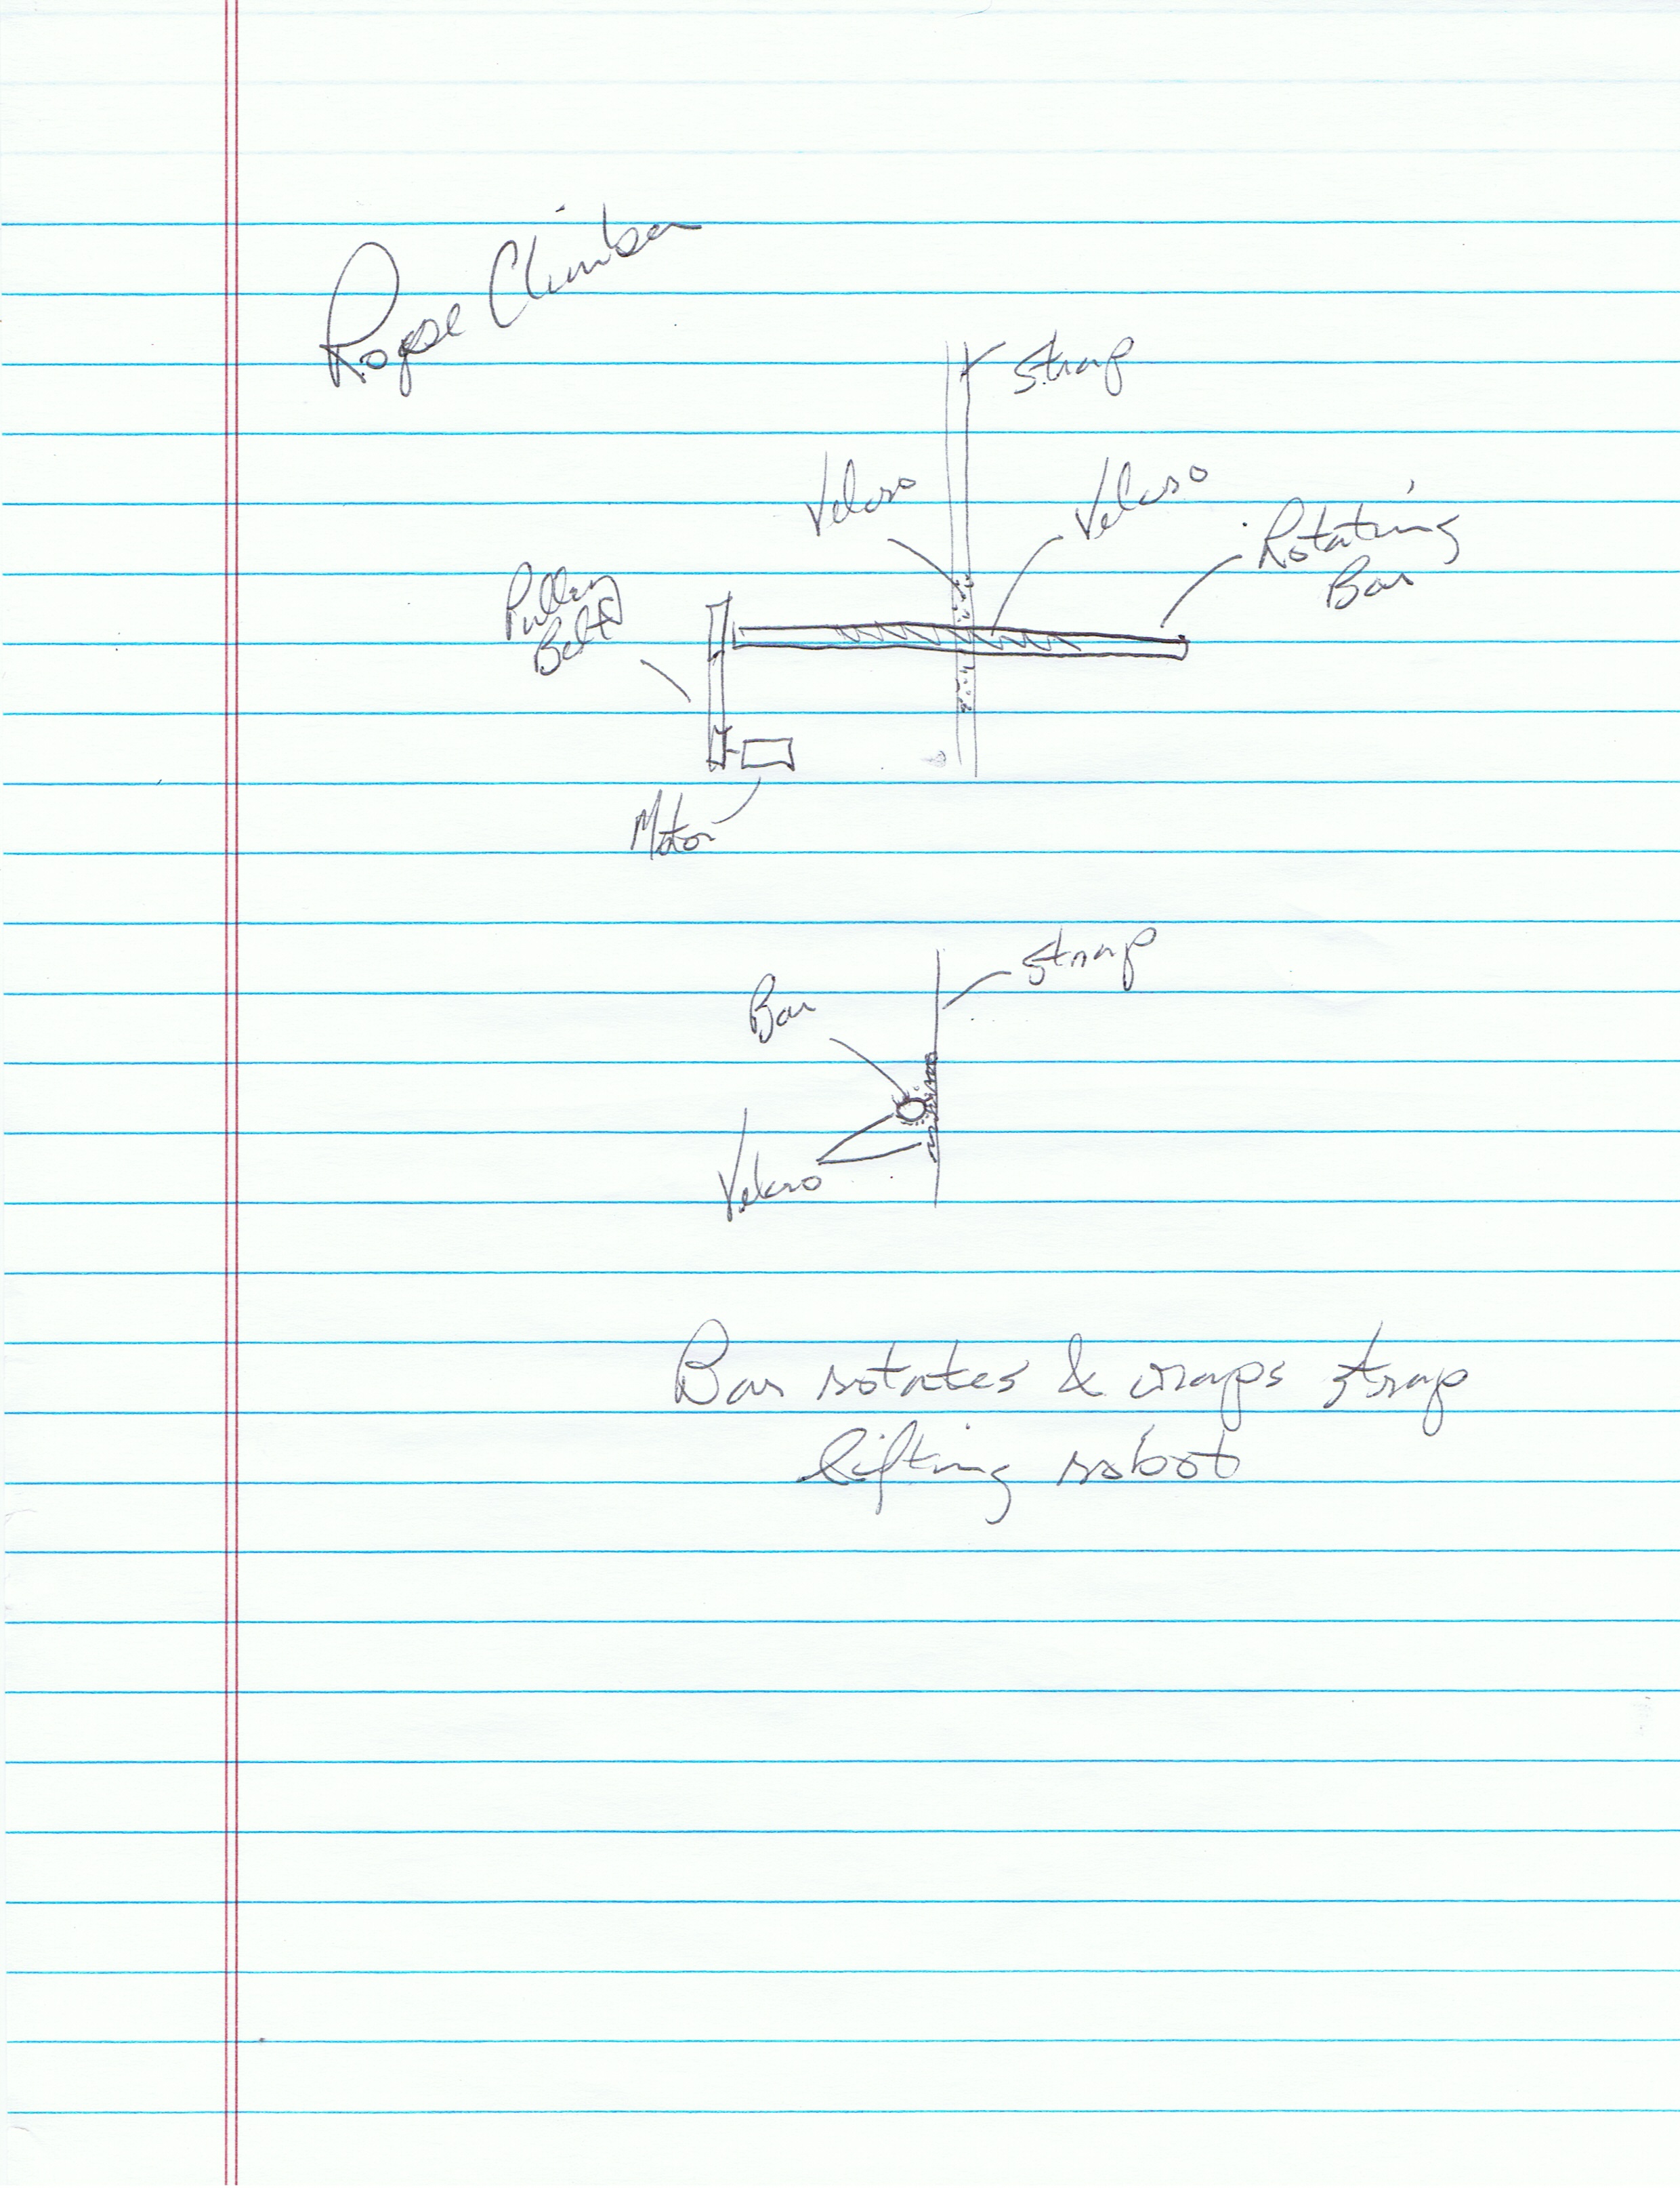 Rope Climber
Strap
Velcro
Velcro
Rotating
Bar
Pulley
Belt
Motor
Strap
Bar
Velcro
Bar rotates & wraps strap
lifting robot